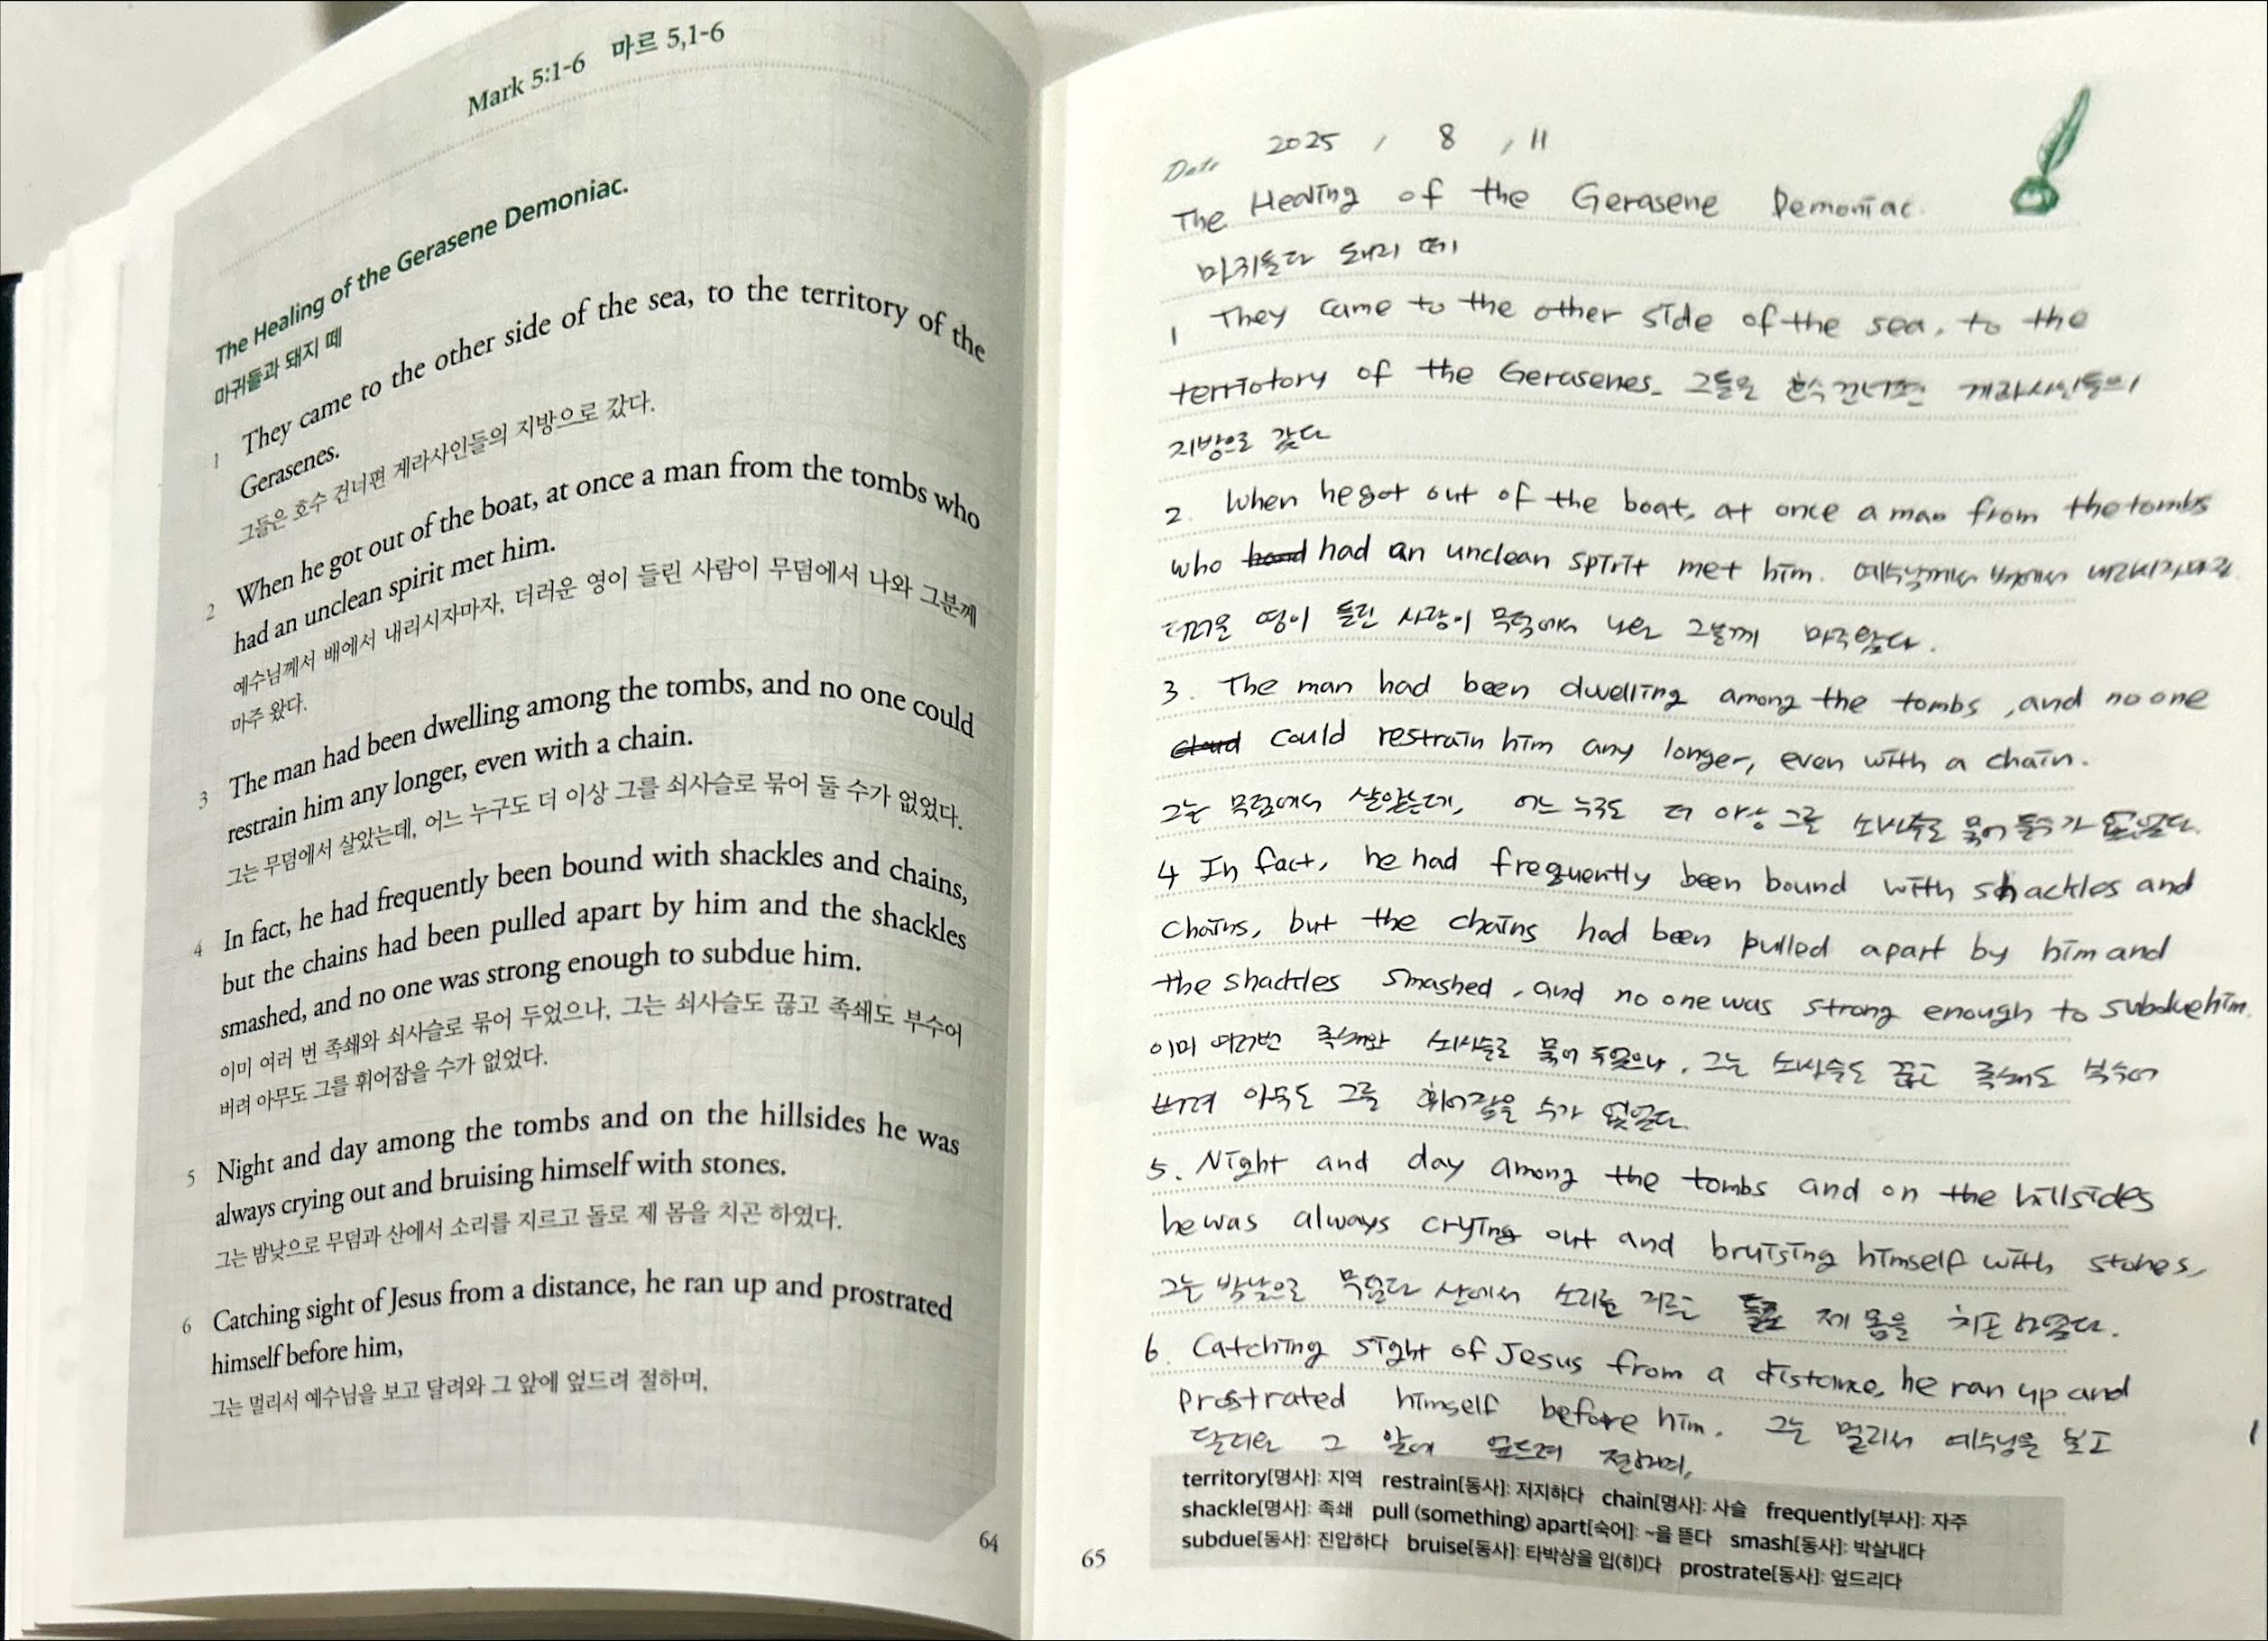 Mark 5:1-6 마르 5,1-6
The Healing of the Gerasene Demoniac.
마귀들과 돼지 떼
1 They came to the other side of the sea, to the territory of the
Gerasenes.
그들은 호수 건너편 게라사인들의 지방으로 갔다.
2 When he got out of the boat, at once a man from the tombs who
had an unclean spirit met him.
예수님께서 배에서 내리시자마자, 더러운 영이 들린 사람이 무덤에서 나와 그분께
마주 왔다.
3 The man had been dwelling among the tombs, and no one could
restrain him any longer, even with a chain.
그는 무덤에서 살았는데, 어느 누구도 더 이상 그를 쇠사슬로 묶어 둘 수가 없었다.
4 In fact, he had frequently been bound with shackles and chains,
but the chains had been pulled apart by him and the shackles
smashed, and no one was strong enough to subdue him.
이미 여러 번 족쇄와 쇠사슬로 묶어 두었으나, 그는 쇠사슬도 끊고 족쇄도 부수어
버려 아무도 그를 휘어잡을 수가 없었다.
5 Night and day among the tombs and on the hillsides he was
always crying out and bruising himself with stones.
그는 밤낮으로 무덤과 산에서 소리를 지르고 돌로 제 몸을 치곤 하였다.
6 Catching sight of Jesus from a distance, he ran up and prostrated
himself before him,
그는 멀리서 예수님을 보고 달려와 그 앞에 엎드려 절하며,
64
Date 2025 , 8 , 11
The Healing of the Gerasene Demoniac.
마귀들과 돼지 떼
1 They came to the other side of the sea, to the
terriotory of the Gerasenes. 그들은 호수 건너편 게라사인들의
지방으로 갔다
2. When he got out of the boat, at once a man from the tombs
who had an unclean spirit met him. 예수님께서 배에서 내리시자마자
더러운 영이 들린 사람이 무덤에서 나와 그분께 마주왔다.
3. The man had been dwelling among the tombs, and no one
could restrain him any longer, even with a chain.
그는 무덤에서 살았는데, 어느 누구도 더 이상 그를 쇠사슬로 묶어 둘수가 없었다.
4 In fact, he had frequently been bound with shackles and
chains, but the chains had been pulled apart by him and
the shackles smashed, and no one was strong enough to subdue him.
이미 여러번 족쇄와 쇠사슬로 묶어 두었으나, 그는 쇠사슬도 끊고 족쇄도 부수어
버려 아무도 그를 휘어잡을 수가 없었다.
5. Night and day among the tombs and on the hillsides
he was always crying out and bruising himself with stones,
그는 밤낮으로 무덤과 산에서 소리를 지르고 돌로 제 몸을 치곤 하였다.
6. Catching sight of Jesus from a distance, he ran up and
prostrated himself before him. 그는 멀리서 예수님을 보고
달려와 그 앞에 엎드려 절하며,
territory[명사]: 지역 restrain[동사]: 저지하다 chain[명사]: 사슬 frequently[부사]: 자주
shackle[명사]: 족쇄 pull (something) apart[숙어]: ~을 뜯다 smash[동사]: 박살내다
subdue[동사]: 진압하다 bruise[동사]: 타박상을 입(히)다 prostrate[동사]: 엎드리다
65